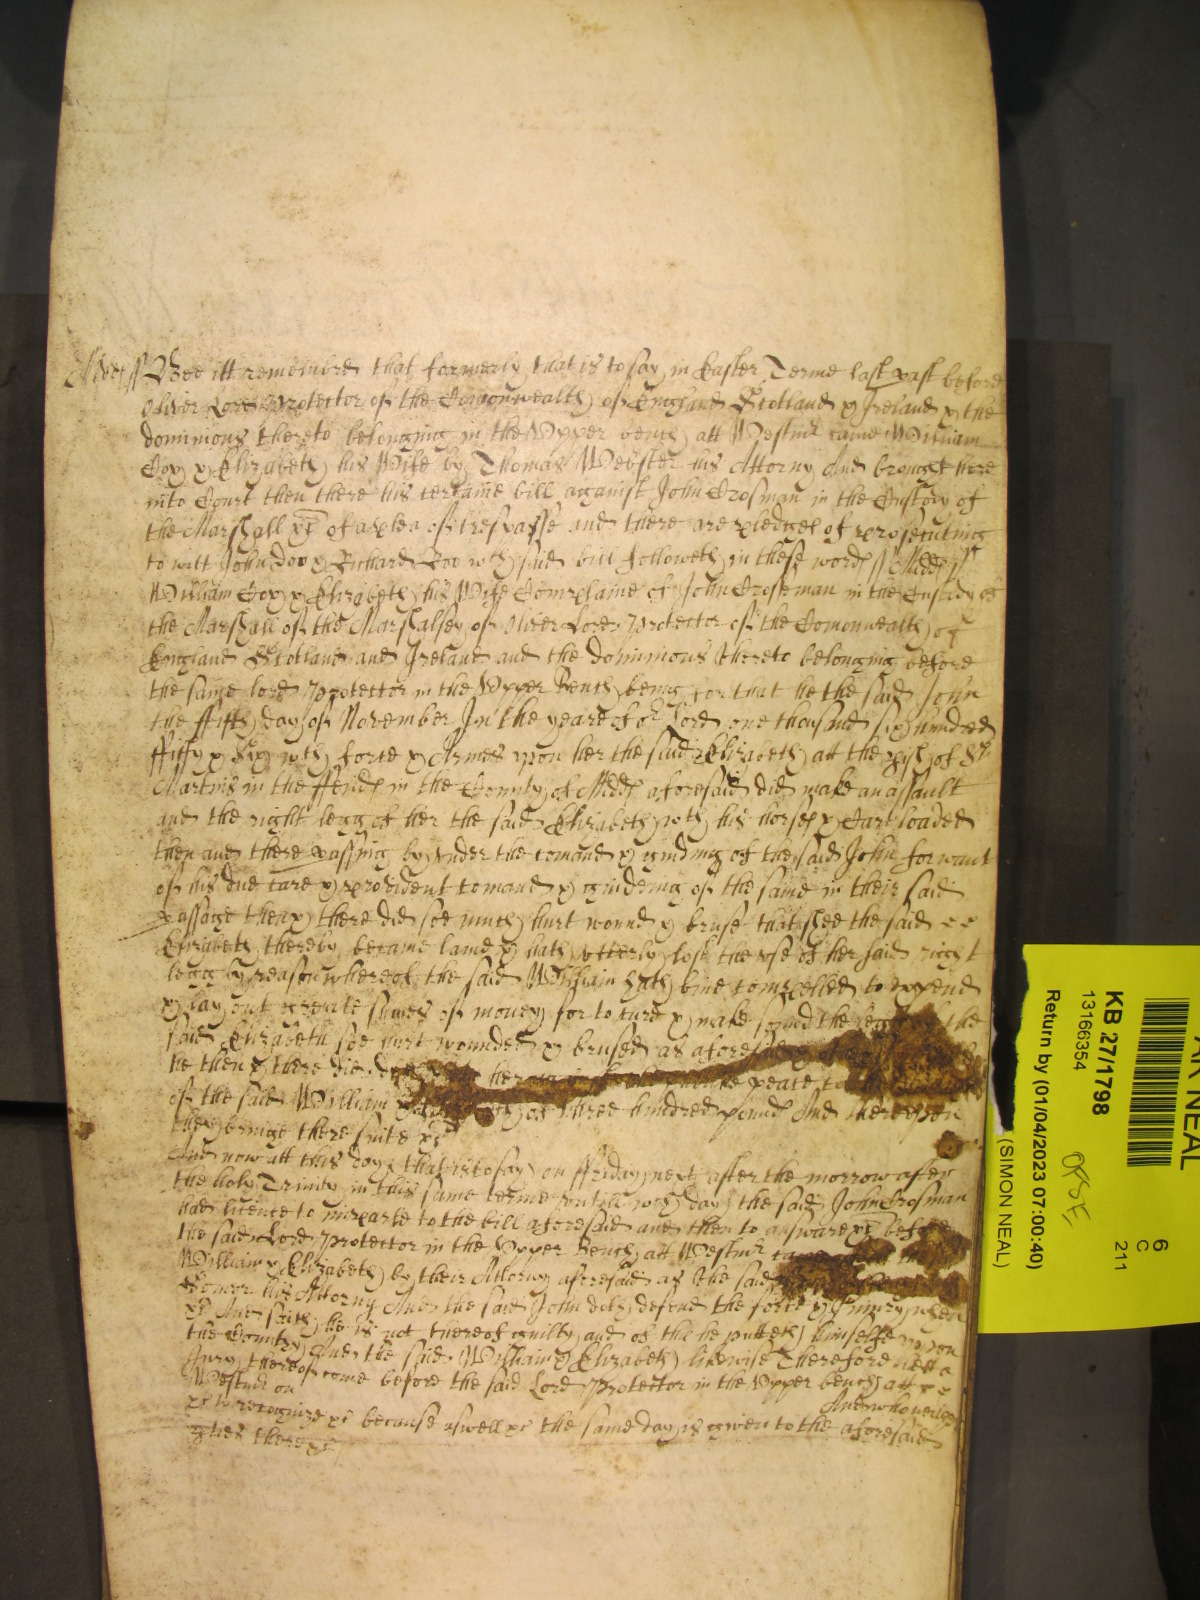 Midd ss Bee itt remembred that formerly that is to say in Easter Terme last past before
Oliver Lord Protector of the Comonwealth of England Scotland & Ireland & the
dominions thereto belonging in the Upper bench att Westmr came William
Cox & Elizabeth his Wife by Thomas Webster his Attorny And brought here
into Court then there his certaine bill against John Crosman in the Custody of
the Marshall &c of a plea of trespasse and there are pledges of prosecuting
to witt John Doo & Richard Roo wch said bill followeth in these words ss Midd ss
William Cox & Elizabeth his Wife Complaine of John Crosman in the Custody of
the Marshall of the Marshalsey of Oliver Lord Protector of the Comonwealth of
England Scotland and Ireland and the dominions thereto belonging before
the same lord Protector in the Upper Bench being for that he the said John
the ffifth day of November In the yeare of or Lord one thousand six hundred
ffifty & Six wth force & Armes upon her the said Elizabeth att the pish of St
Martins in the ffeilds in the County of Midd aforesaid did make an assault
and the right legg of her the said Elizabeth wth his horses & Cart loaded
then and there passing by under the comand & guiding of the said John for want
of his due care & provident comand & guideing of the same in their said
passage then & there did soe much hurt wound & bruse that shee the said
Elizabeth thereby became lame & hath utterly lost the use of her said right
legg by reason whereof the said William hath bine compelled to expend
& lay out greate sumes of money for to cure & make sound the legg of the
said Elizabeth soe hurt wounded & brused as aforesaid &
he then & there did her peace to
of the said William of three hundred pounds And thereupon
they bringe there suite &c
And now att this day that is to say on ffriday next after the morrow after
the holy Trinity in this same terme untill wch day the said John Crosman
had licence to imparle to the bill aforesaid and then to answare &c before
the said Lord Protector in the Upper Bench att Westmr came
William & Elizabeth by their Attorny aforesaid as the said
his Attorny And the said John doth defend the force & Iniury when
&c And saith he is not thereof guilty and of this he putteth himselfe upon
the Country And the said William & Elizabeth likewise Therefore lett a
Jury thereof come before the said Lord Protector in the Upper bench att
Westmr on And who neither
&c to recognize &c because aswell &c the same day is given to the aforesaid
pties there &c
AR NEAL
KB 27/1798
13166354
Return by (01/04/2023 07:00:40)
(SIMON NEAL)
6
C
211